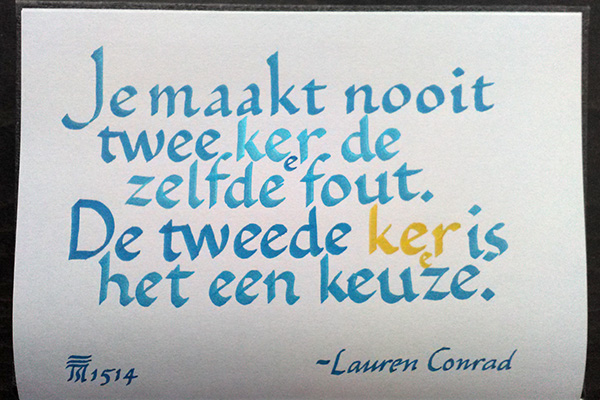 Je maakt nooit
twee keer de
zelfde fout.
De tweede keer is
het een keuze.
1514
~Lauren Conrad